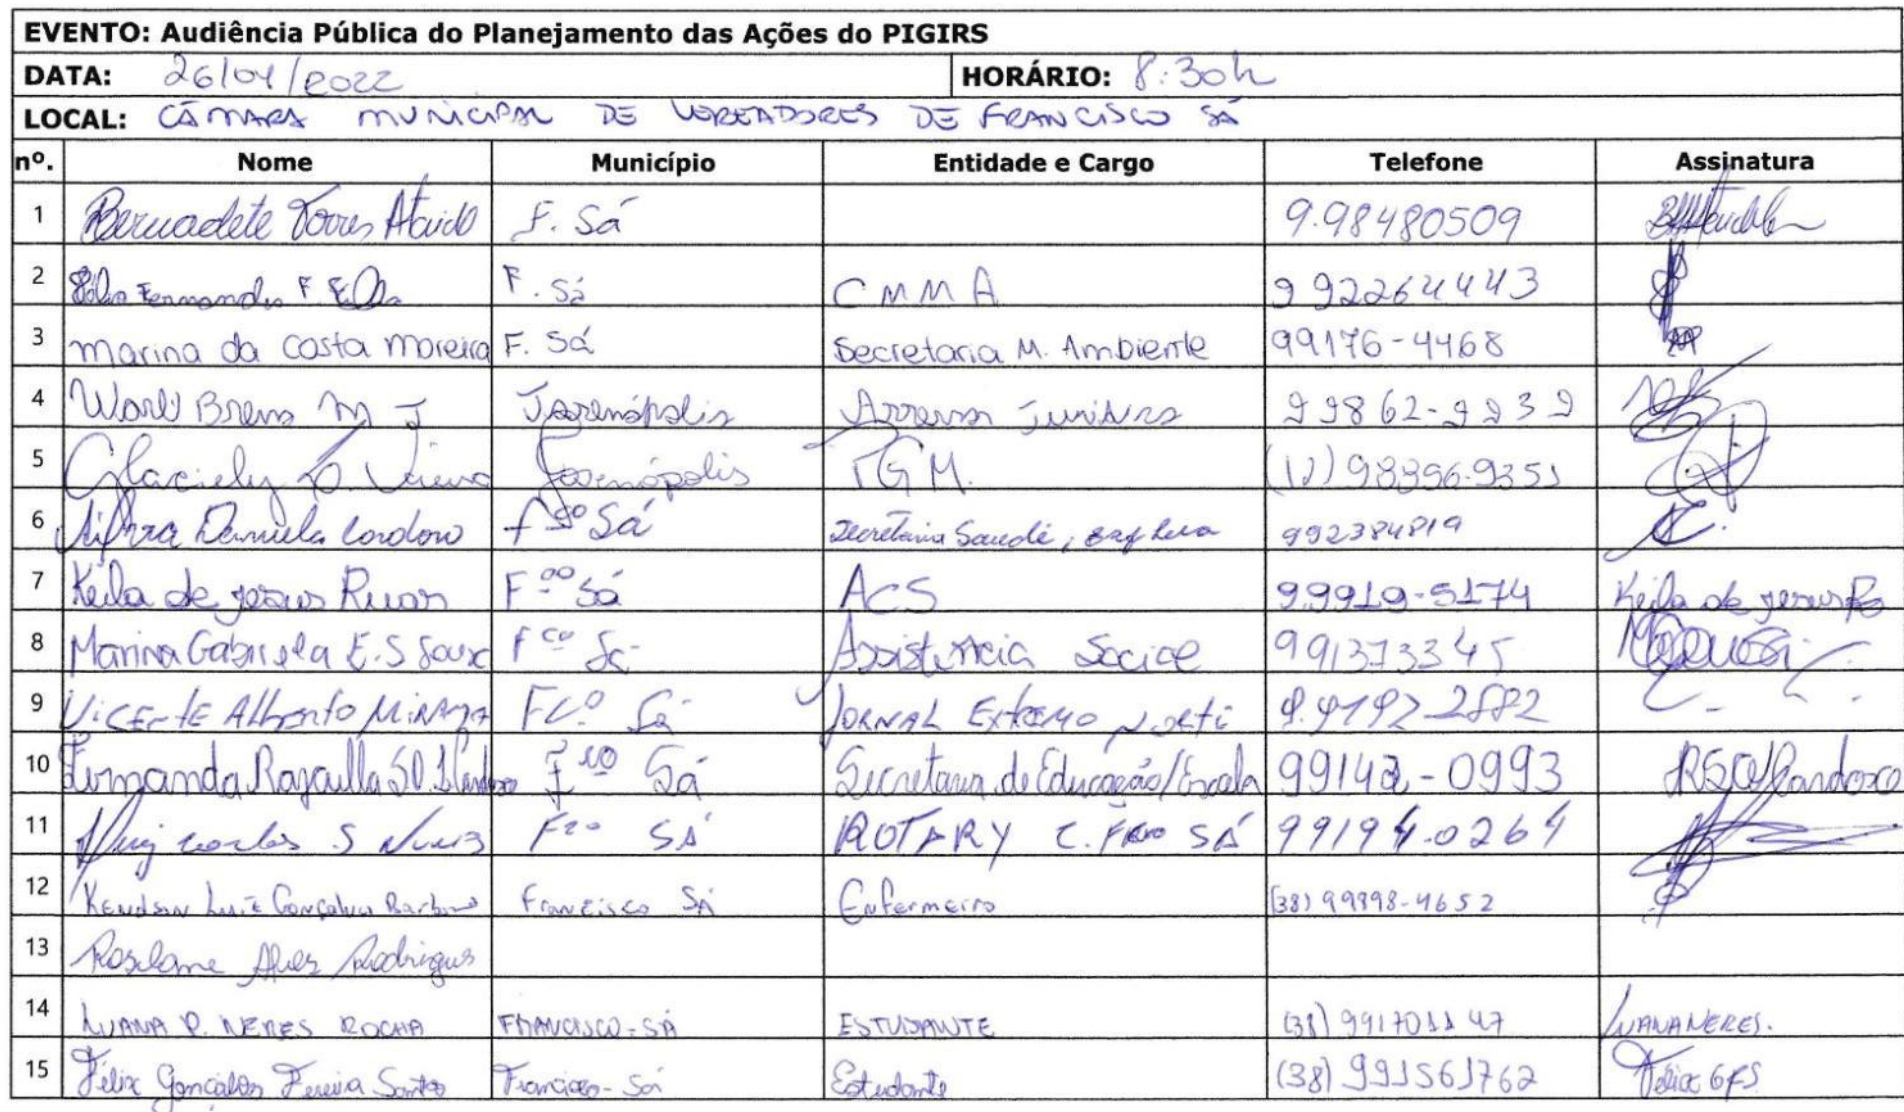 EVENTO: Audiência Pública do Planejamento das Ações do PIGIRS
DATA: 26/04/2022 HORÁRIO: 8:30h
LOCAL: CÂMARA MUNICIPAL DE VEREADORES DE FRANCISCO SÁ
nº. Nome Município Entidade e Cargo Telefone Assinatura
1 Bernadete Torres Ataide F. Sá 9.98480509
2 Fernandes F. F. Sá CMMA 992264443
3 marina da Costa moreira F. Sá Secretaria M. Ambiente 99176-4468
4 M J Josenópolis Jurídica 99862-9939
5 Glaciely Josenópolis
6 Daniela Cordoro Sá Secretaria Saude, 992384819
7 Keila de jesus Ruas Sá ACS 9.9919-5174 Keila de jesus R
8 Marina Gabriela E. S Souza Fco Sá Assistencia Social 991373345
9 VICENTE Alberto MIRANDA FCº Sá JORNAL EXTREMO NORTE
10 Fernanda Rafaella Sá Secretaria de Educação/Escola 99142-0993
11 carlos S SÁ ROTARY C. SÁ 99194-0264
12 Luiz Gonçalves Barbosa Francisco Sá Enfermeiro (38) 99898-4652
13 Alves Rodrigues
14 LUANA P. NERES ROCHA FRANCISCO-SÁ ESTUDANTE (38) 991701147 LUANA NERES.
15 Félix Gonçalves Pereira Santos Francisco-Sá Estudante (38) 991561762 Félix GFS